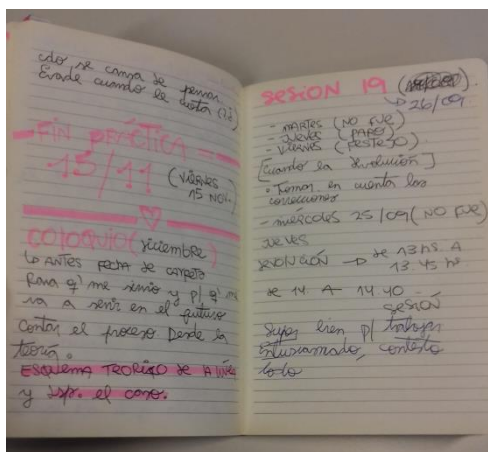 cdo se cansa de pensar.
Evade cuando le cuesta
FIN PRÁCTICA
15/11 (VIERNES
15 NOV.)
COLOQUIO (diciembre)
↳ ANTES FECHA de CARPETA
q' me sirvio y p/ q' me
va a servir en el futuro
Contar el proceso Desde la
teoría.
ESQUEMA TEORICO de A
y dsp. el caso.
SESION 19
↳ 26/09
- MARTES (NO FUE)
- JUEVES (PAPER)
- VIERNES (FESTEJO)
[Cuando la devolución]
• Tener en cuenta las
correcciones
- miércoles 25/09 (NO FUE)
JUEVES
DEVOLUCIÓN → de 13 hs. A
13 45 hs
de 14 A 14 40
SESIÓN
bien p/ trabajar
entusiasmado, contesto
todo